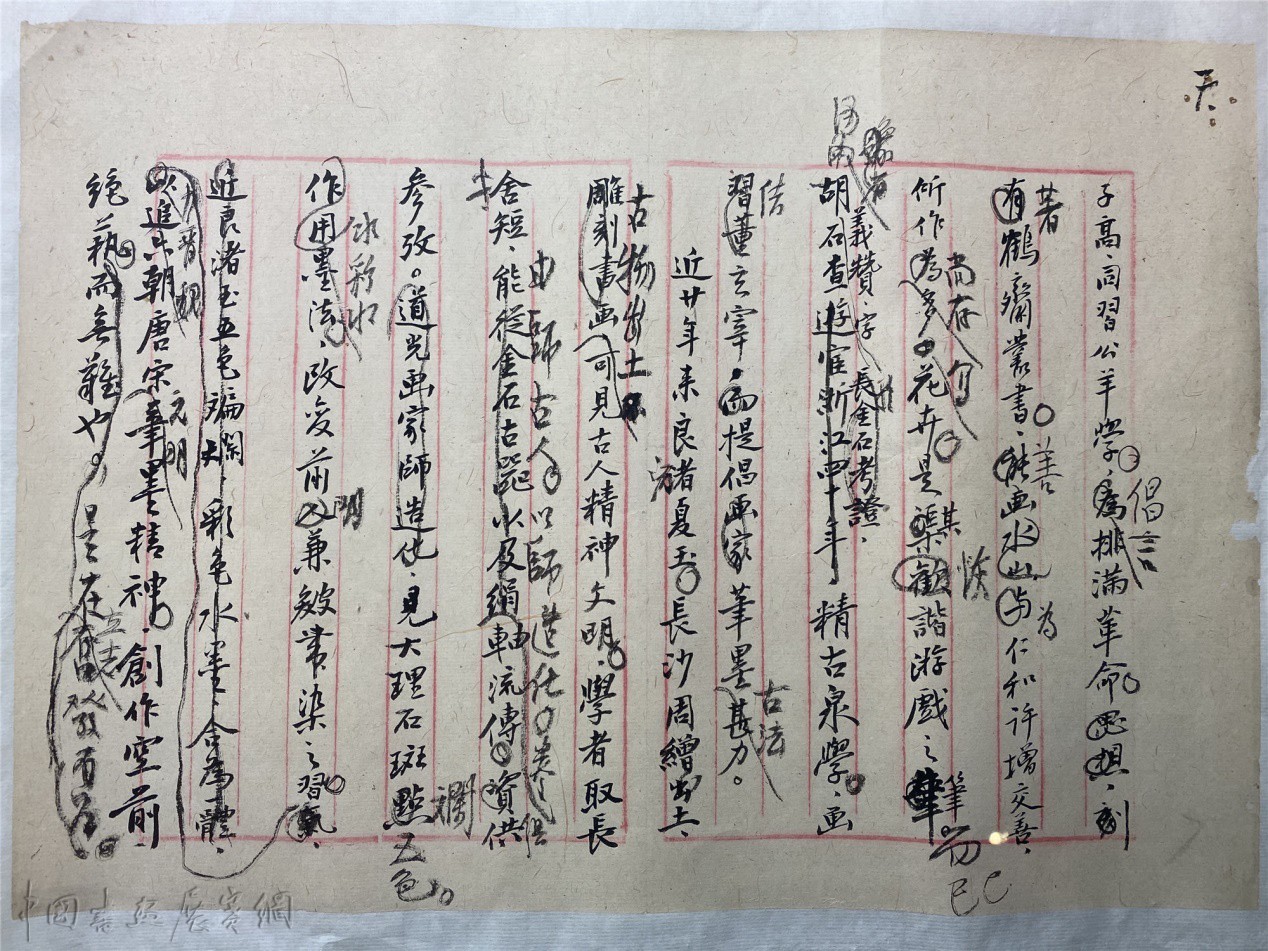 子高、同習公羊學、為排滿革命思想、刻
倡言
有鶴齋叢書、能画水山与仁和許增交善、
著
善
為
所作為多、花卉是渠歡諧游戲之筆
尚存
其
筆而已
義贊字 長金石考證、
胡石查遊宦浙江四十年、精古泉學、画
習董玄宰、而提倡画家筆墨甚力。
古法
近廿年来良渚夏玉、長沙周繒出土、
古物出土
雕刻畫画可見古人精神文明、學者取長
由師古人以師造化
舍短、能從金石古器以及絹軸流傳、資供
参攷。道光画家師造化、見大理石斑點五色。
斕
作用墨法、改变前人兼皴帶染之習氣、
水彩
明
近良渚玉五色斒斕、大彩色水墨、合為一體、
以追六朝唐宋筆墨精神、創作空前
元明
絕藝而無難也。是在奮發有為。
立志
中國書畫展賽網